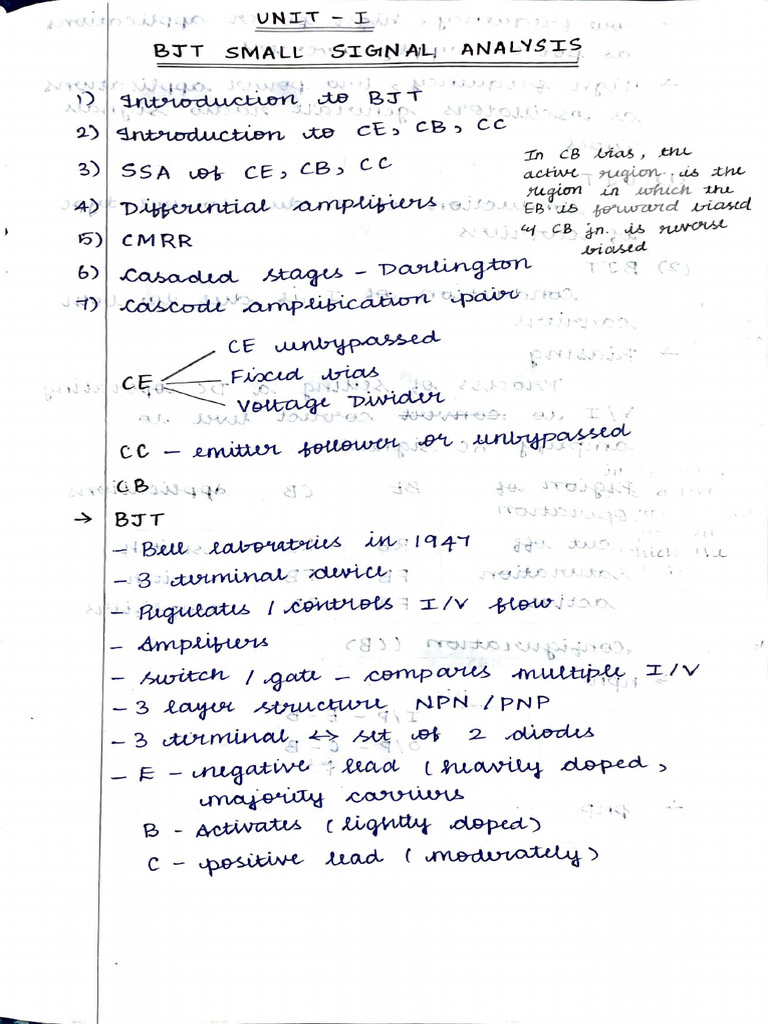 UNIT - I
BJT SMALL SIGNAL ANALYSIS
1) Introduction to BJT
2) Introduction to CE, CB, CC
3) SSA of CE, CB, CC
4) Differential amplifiers
5) CMRR
6) Casaded stages - Darlington
7) Cascode amplification pair
In CB bias, the
active region is the
region in which the
EB is forward biased
& CB jn. is reverse
biased
CE
CE unbypassed
Fixed bias
Voltage Divider
CC - emitter follower or unbypassed
CB
→ BJT
- Bell laboratries in 1947
- 3 terminal device
- Regulates / controls I/V flow
- Amplifiers
- switch / gate - compares multiple I/V
- 3 layer structure NPN / PNP
- 3 terminal ↔ set of 2 diodes
- E - negative lead (heavily doped,
majority carriers
B - Activates (lightly doped)
C - positive lead (moderately)